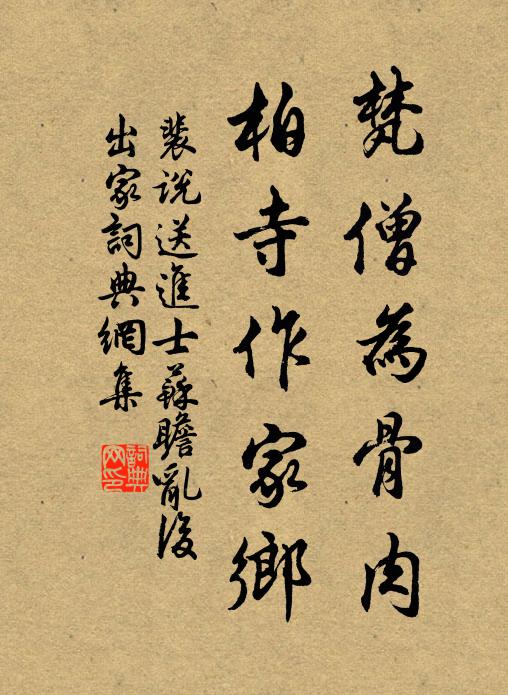 梵僧為骨肉
柏寺作家鄉
裴说送進士蘇瞻亂後
出家詞典網集
詞典
网印